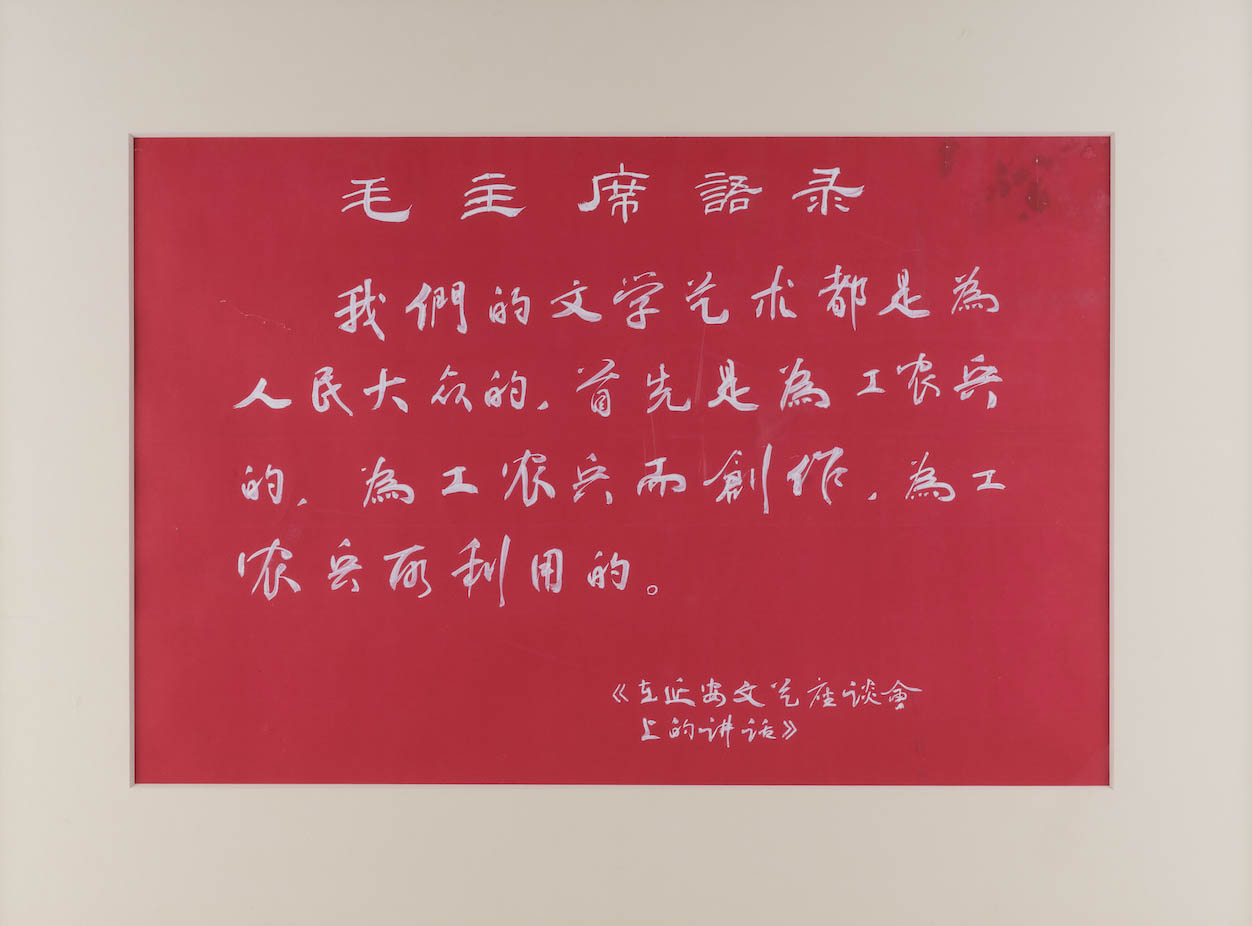 毛主席語录
我們的文学艺术都是為
人民大众的，首先是為工农兵
的，為工农兵而創作，為工
农兵所利用的。
《在延安文艺座谈會
上的讲话》